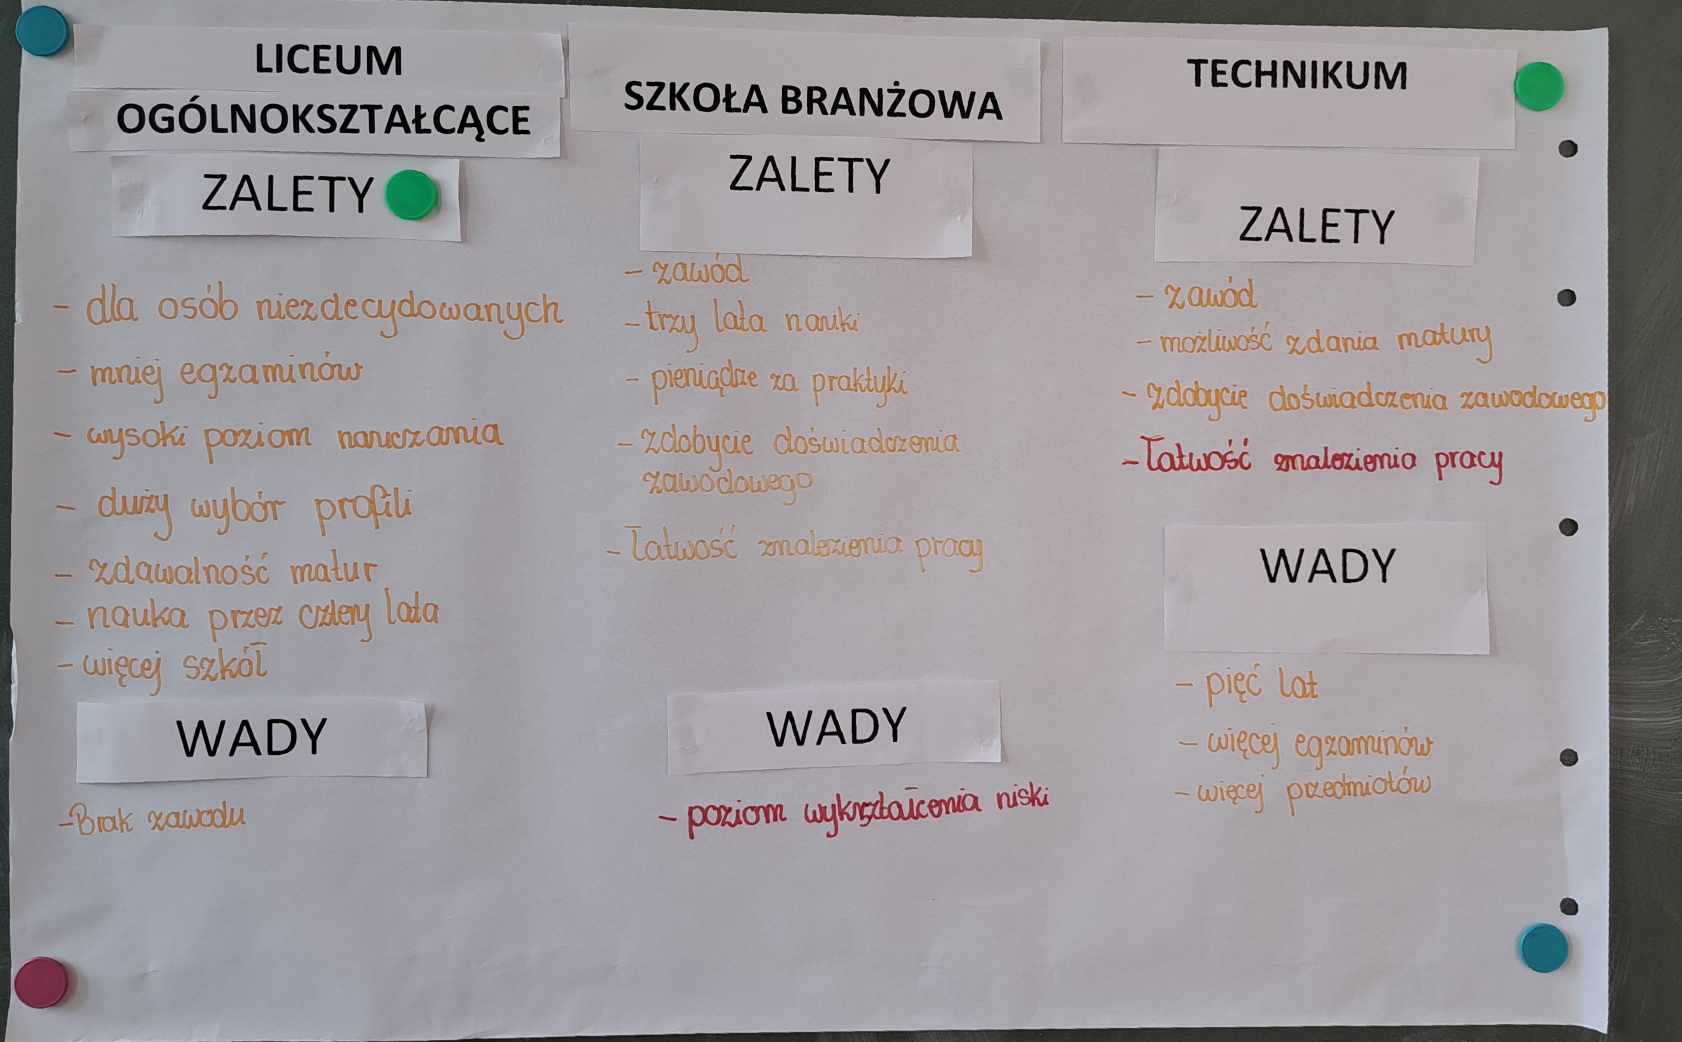 LICEUM
OGÓLNOKSZTAŁCĄCE
ZALETY
- dla osób niezdecydowanych
- mniej egzaminów
- wysoki poziom nauczania
- duży wybór profili
- zdawalność matur
- nauka przez cztery lata
- więcej szkół
WADY
- Brak zawodu
SZKOŁA BRANŻOWA
ZALETY
- zawód
- trzy lata nauki
- pieniądze za praktyki
- zdobycie doświadczenia
zawodowego
- łatwość znalezienia pracy
WADY
- poziom wykształcenia niski
TECHNIKUM
ZALETY
- zawód
- możliwość zdania matury
- zdobycie doświadczenia zawodowego
- łatwość znalezienia pracy
WADY
- pięć lat
- więcej egzaminów
- więcej przedmiotów